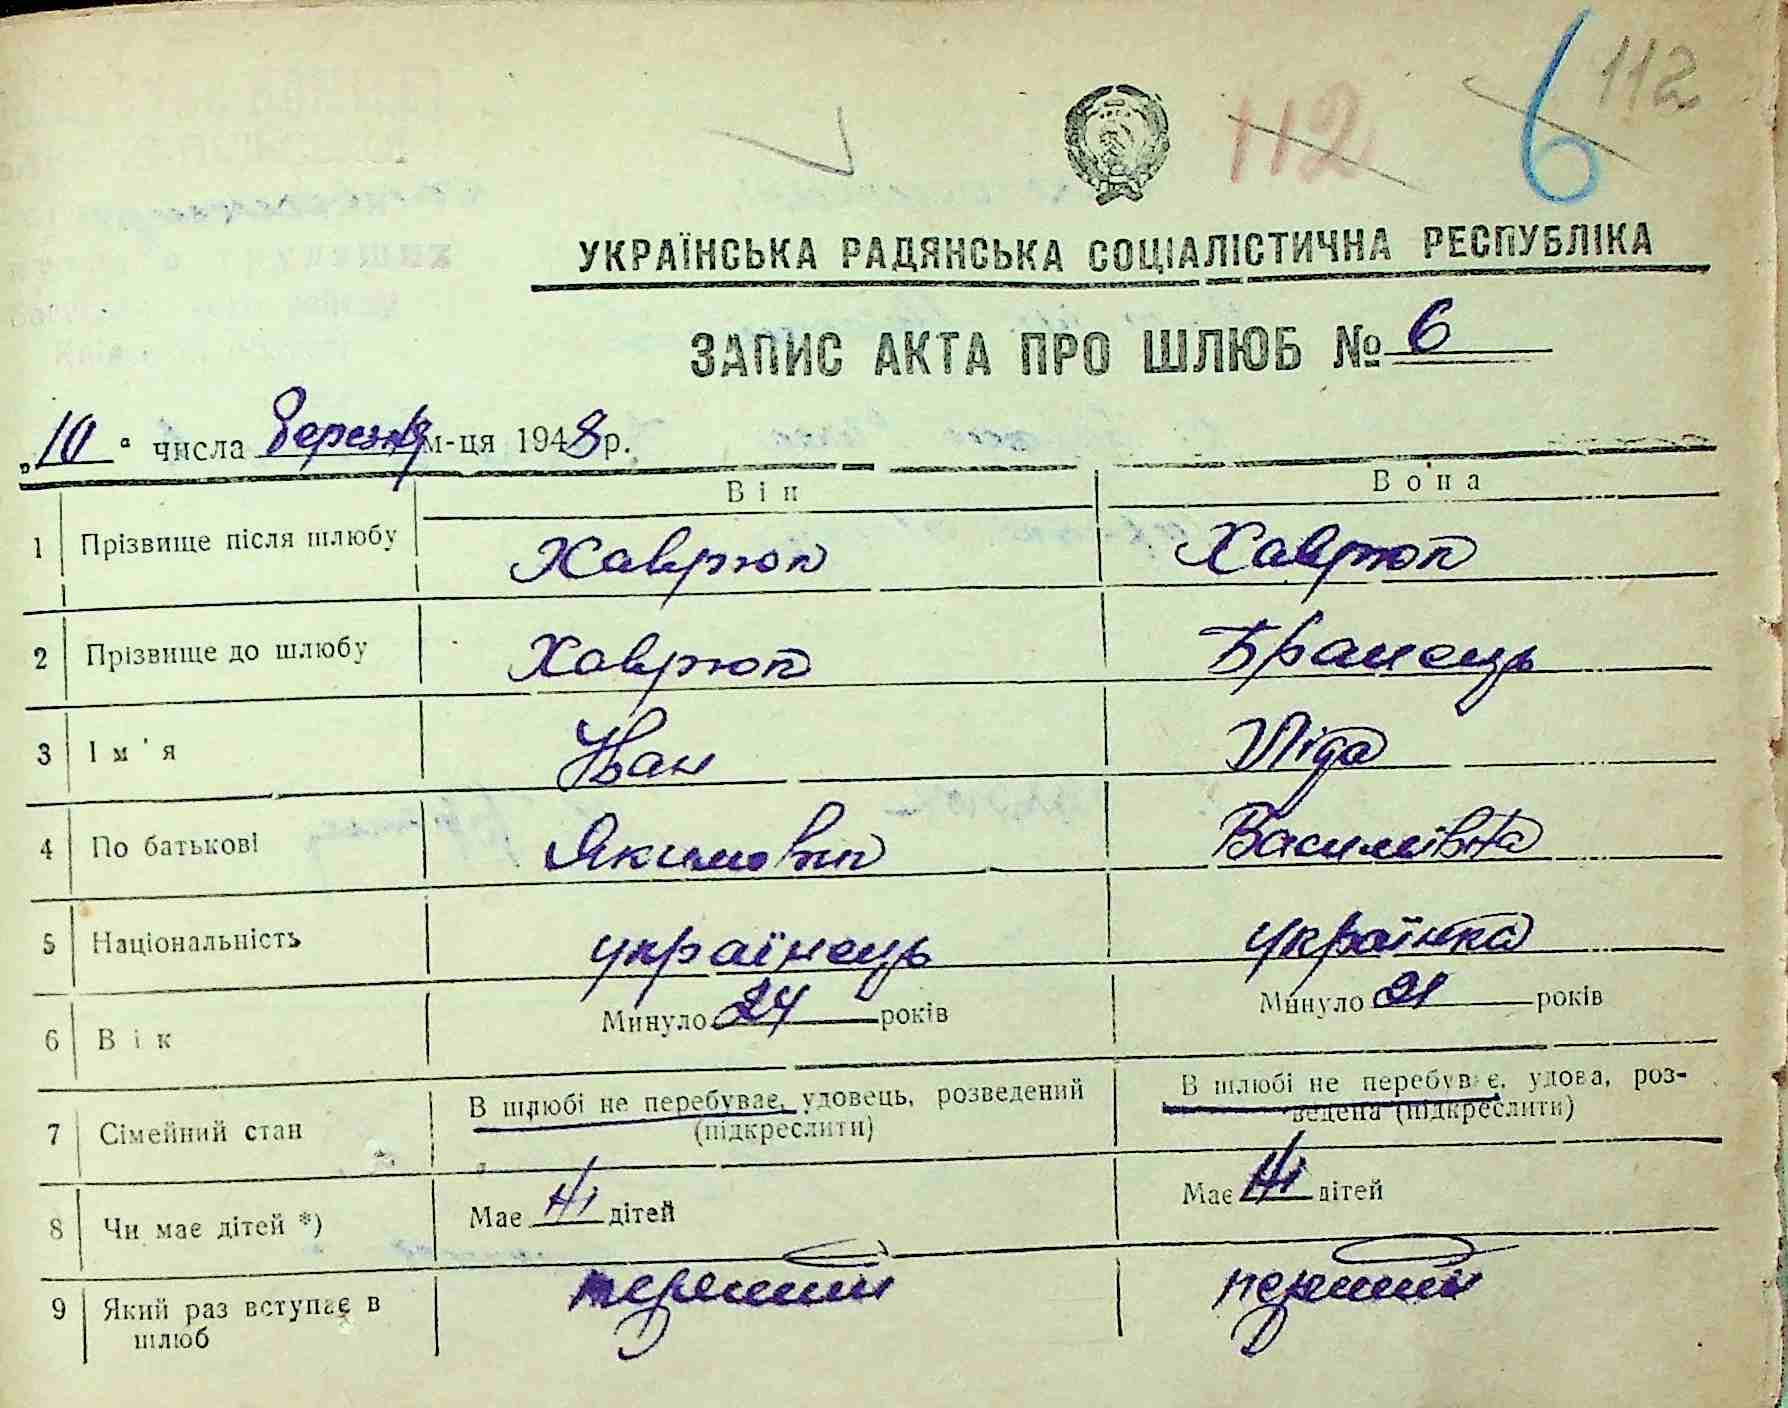 112
6
112
УКРАЇНСЬКА РАДЯНСЬКА СОЦІАЛІСТИЧНА РЕСПУБЛІКА
ЗАПИС АКТА ПРО ШЛЮБ № 6
„10“ числа березня м-ця 1948 р.
Він Вона
1 Прізвище після шлюбу Хаврюк Хаврюк
2 Прізвище до шлюбу Хаврюк Бранець
3 Ім'я Іван Ліда
4 По батькові Якимович Василівна
5 Національність українець українка
6 Вік Минуло 24 років Минуло 21 років
7 Сімейний стан В шлюбі не перебуває, удовець, розведений (підкреслити) В шлюбі не перебуває, удова, роз-
ведена (підкреслити)
8 Чи має дітей *) Має ні дітей Має ні дітей
9 Який раз вступає в шлюб перший перший